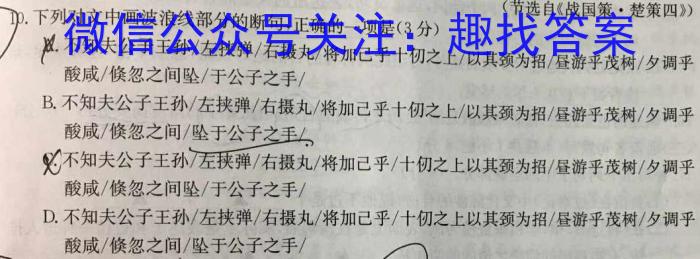 (节选自《战国策·楚策四》)
10.下列对文中画波浪线部分的断句,正确的一项是(3分)
微信公众号关注:趣找答案
A.不知夫公子王孙/左挟弹/右摄丸/将加己乎十仞之上/以其颈为招/昼游乎茂树/夕调乎
酸咸/倏忽之间坠/于公子之手/
B.不知夫公子王孙/左挟弹/右摄丸/将加己乎十仞之上/以其颈为招/昼游乎茂树/夕调乎
酸咸/倏忽之间/坠于公子之手/
不知夫公子王孙/左挟弹/右摄丸/将加己乎/十仞之上/以其颈为招/昼游乎茂树/夕调乎
酸咸/倏忽之间坠/于公子之手/
D.不知夫公子王孙/左挟弹/右摄丸/将加己乎/十仞之上以其颈为招/昼游乎茂树/夕调乎
酸咸/倏忽之间/坠于公子之手/